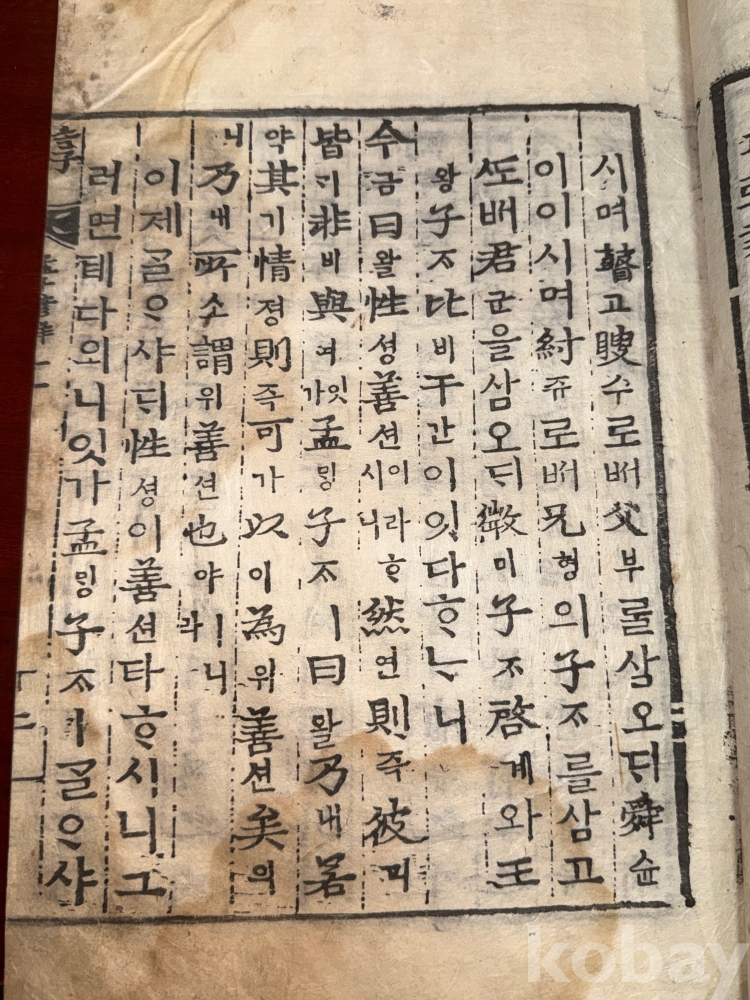 시며瞽고瞍수로ᄡᅥ父부를삼오ᄃᆡ舜슌
이이시며紂쥬로ᄡᅥ兄형의子ᄌᆞ를삼고
ᄯᅩᄡᅥ君군을삼오ᄃᆡ微미子ᄌᆞ啓계와王
왕子ᄌᆞ比비干간이잇다ᄒᆞᄂᆞ니
今금曰왈性셩善션이라ᄒᆞ시니然연則즉彼피
皆ᄀᆡ非비與여잇가孟ᄆᆡᆼ子ᄌᆞㅣ曰왈乃내若
약其기情졍則즉可가以이為위善션矣의
니乃내所소謂위善션也야ㅣ니라
이제ᄀᆞᆯᄋᆞ샤ᄃᆡ性셩이善션타ᄒᆞ시니그
러면뎨다외니잇가孟ᄆᆡᆼ子ᄌᆞㅣᄀᆞᆯᄋᆞ샤
kobay